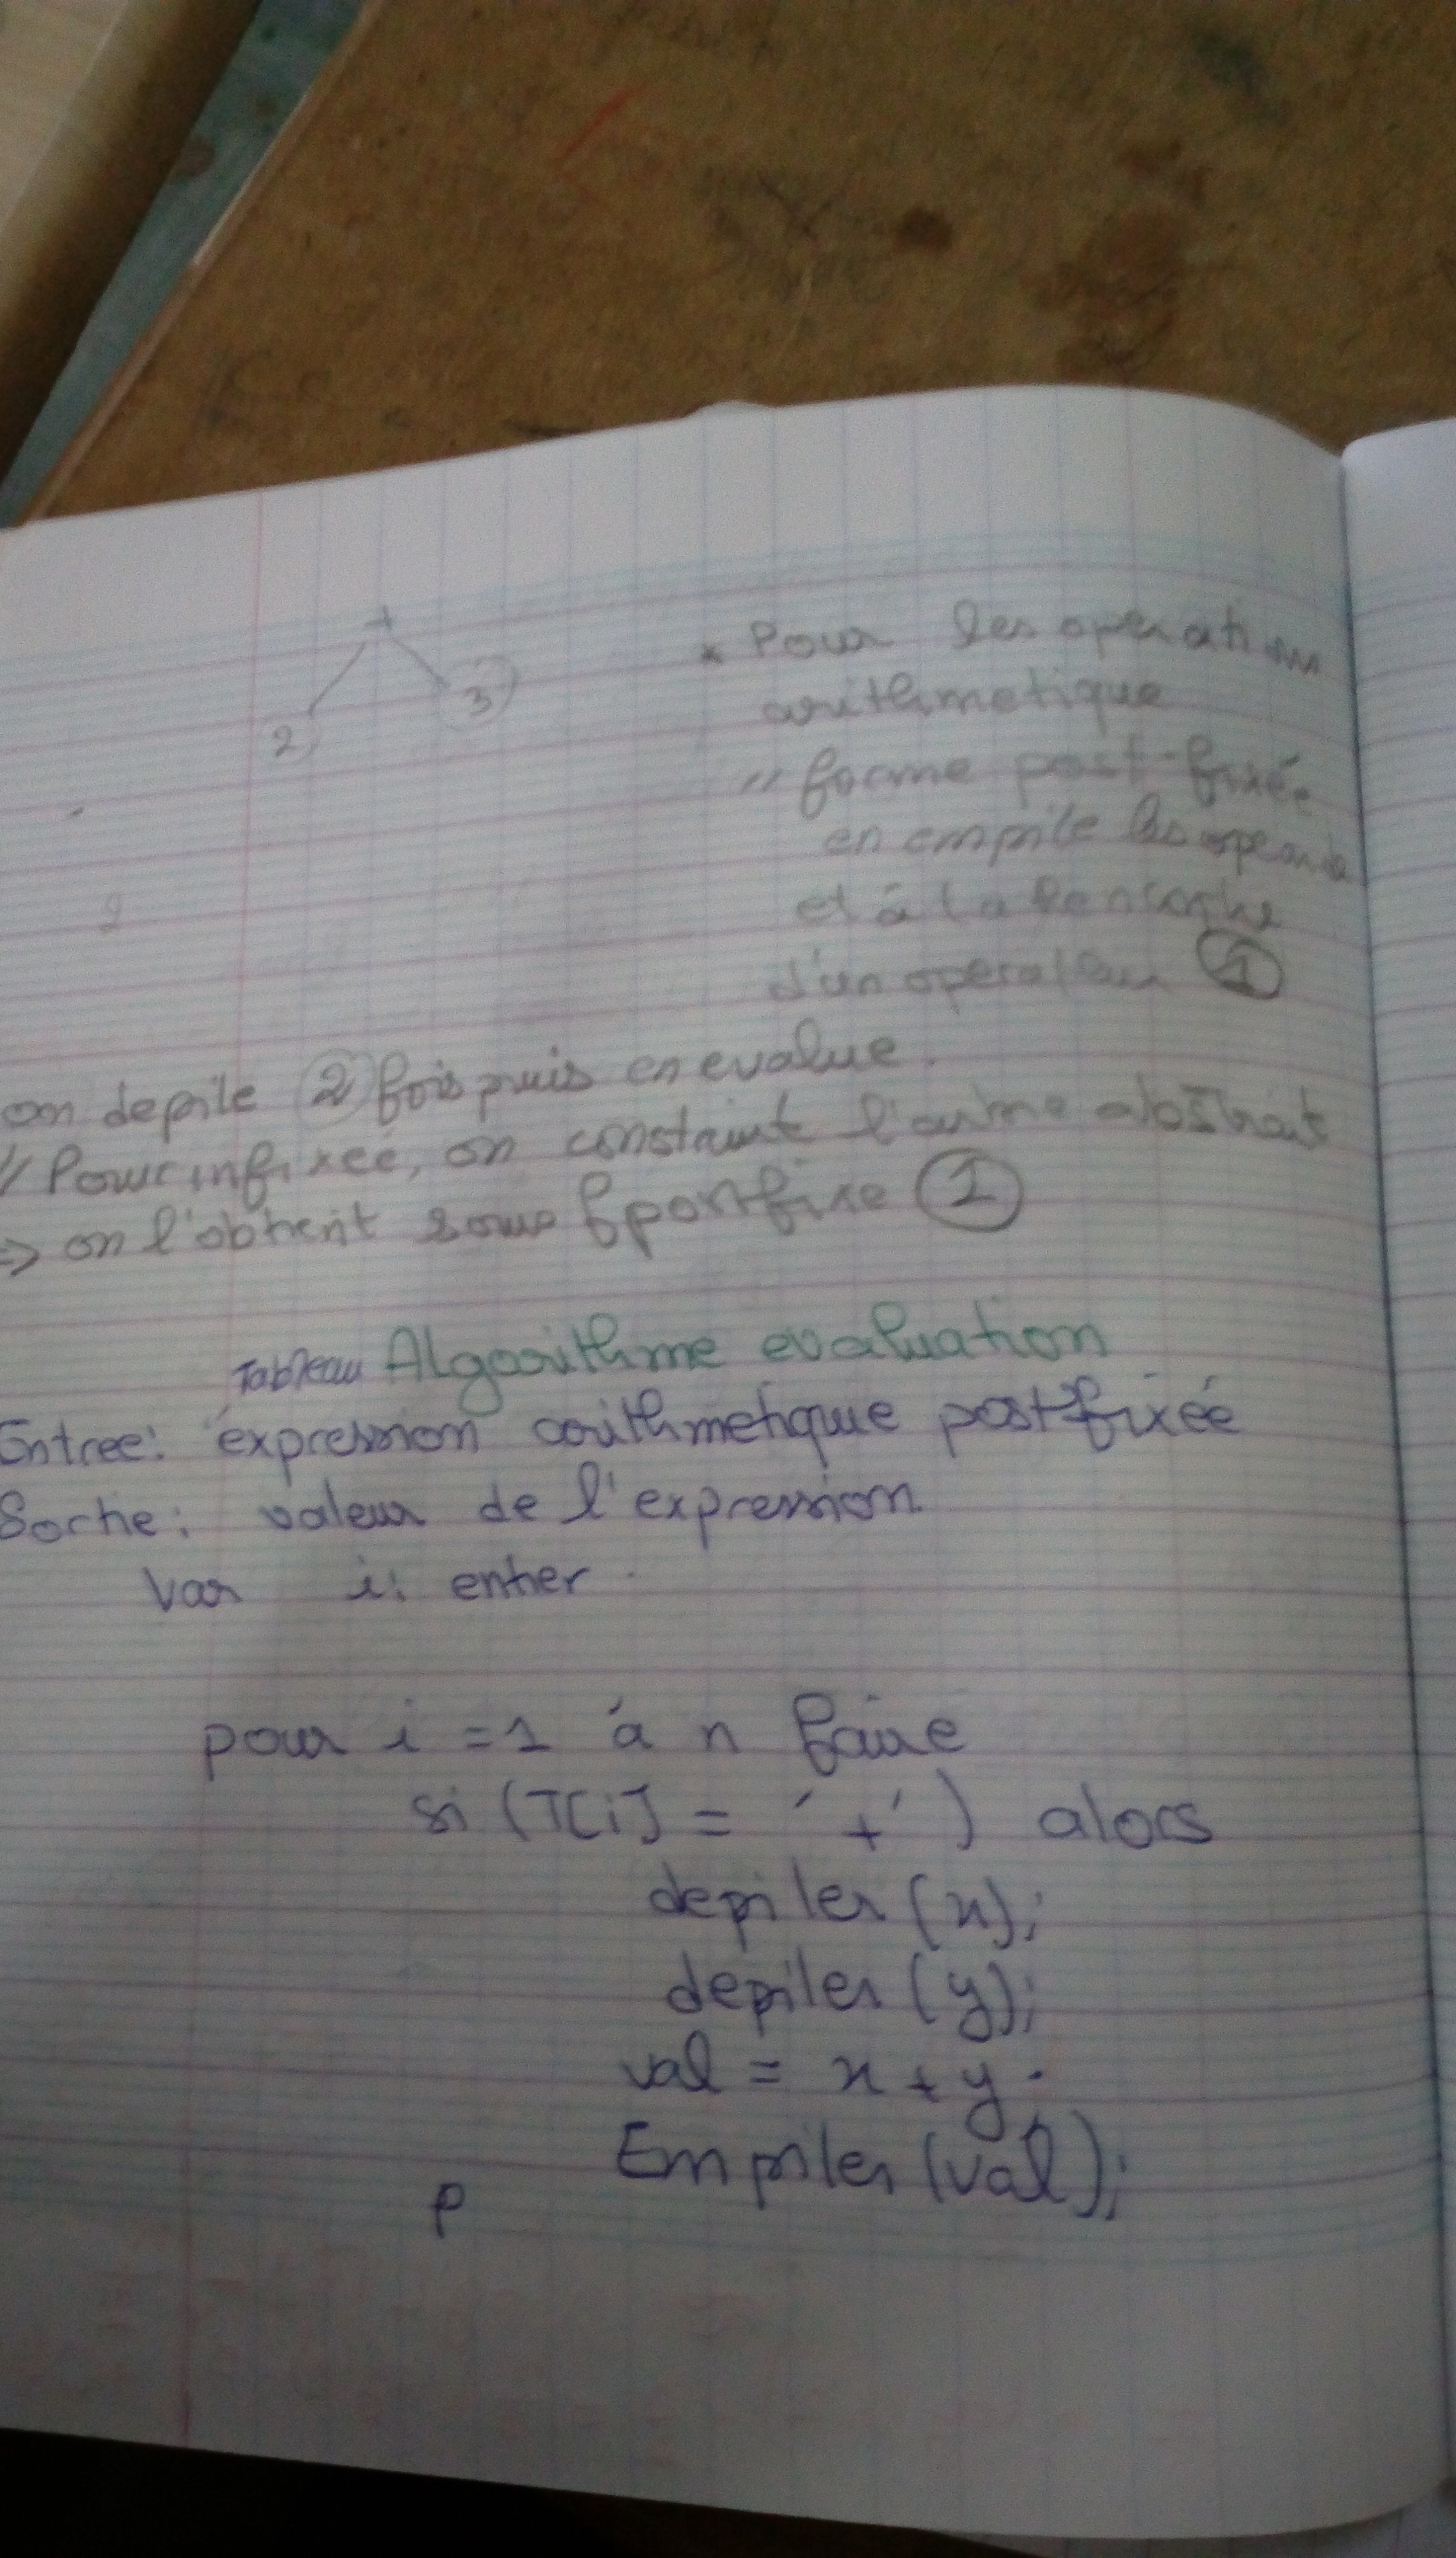 +
2 3
* Pour les operations
arithmetique
// forme post-fixée
en empile les operandes
et à la rencontre
d'un operateur 1
on depile 2 fois puis en evalue.
// Pour infixée, on construit l'arbre abstrait
=> on l'obtient sous f postfixe 1
Tableau Algorithme evaluation
Entree: expression arithmetique post-fixée
Sortie: valeur de l'expression.
Var i: entier.
pour i = 1 à n faire
si (T[i] = '+') alors
depiler (x);
depiler (y);
val = x + y.
Empiler (val);
p